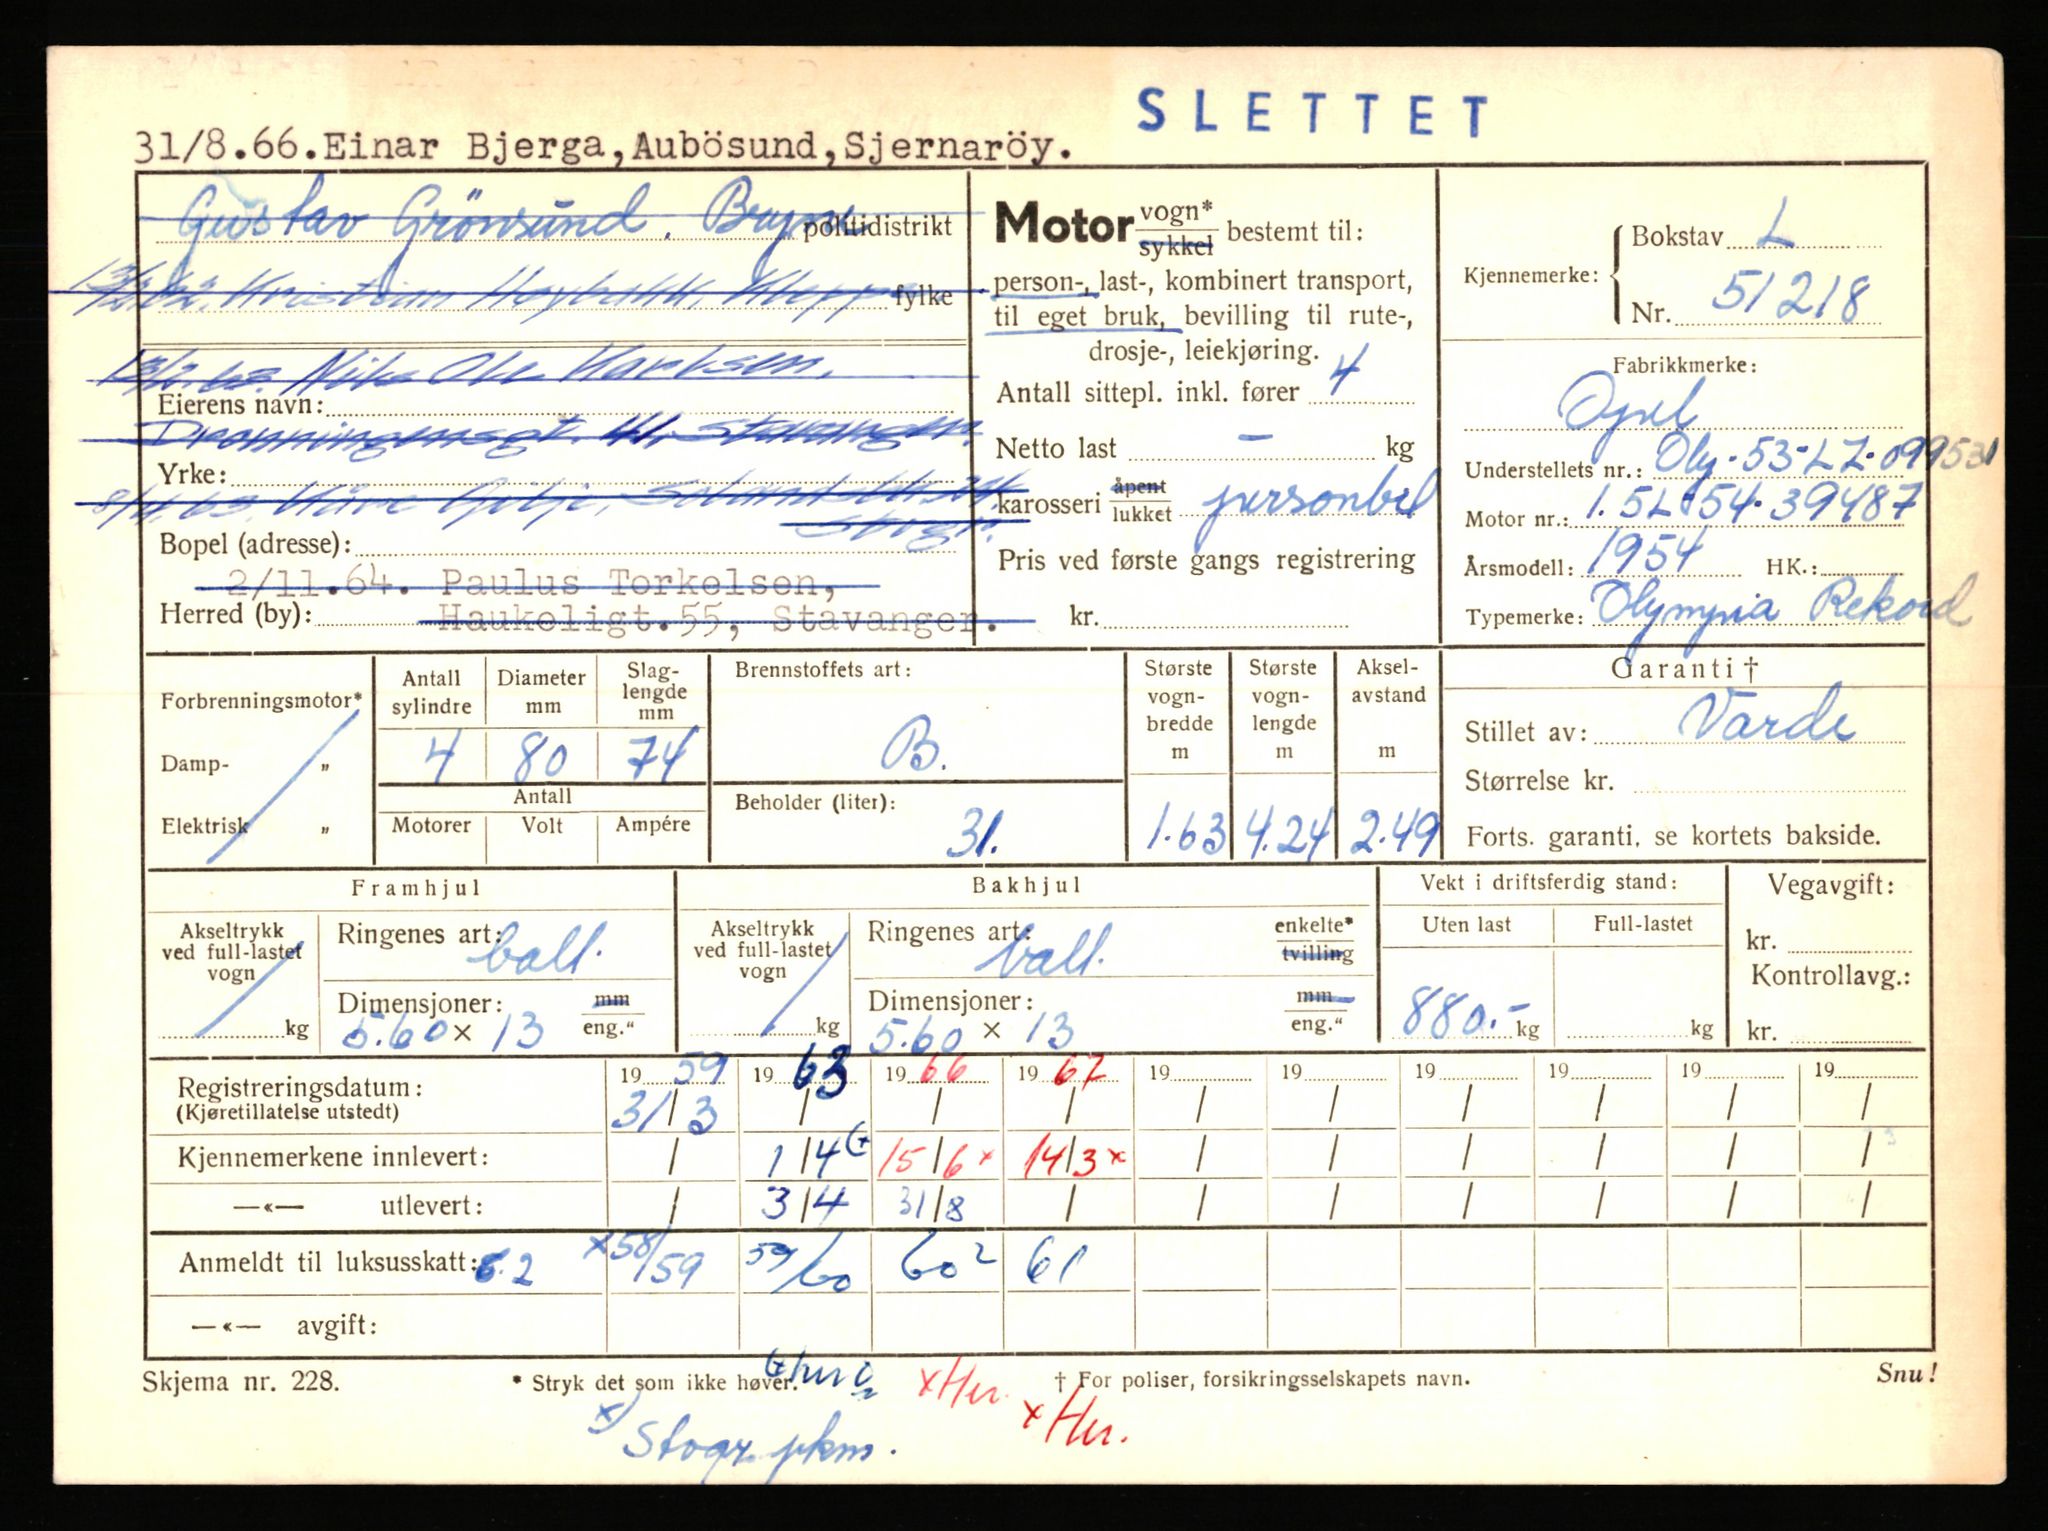 SLETTET
31/8.66.Einar Bjerga,Aubösund,Sjernaröy.
Gustav Grönsund. Bryne politidistrikt
Kristian fylke
Nils Ole
Eierens navn:
Dronningensgt. 41, Stavanger.
Yrke:
Bopel (adresse):
2/11.64. Paulus Torkelsen,
Herred (by): Haukeligt.55, Stavanger.
Motor vogn* sykkel bestemt til:
person-, last-, kombinert transport,
til eget bruk, bevilling til rute-,
drosje-, leiekjøring.
Antall sittepl. inkl. fører 4
Netto last – kg
karosseri åpent lukket personbil
Pris ved første gangs registrering
kr.
Kjennemerke: Bokstav L
Nr. 51218
Fabrikkmerke:
Opel
Understellets nr.: Oly-53-LZ-099531
Motor nr.: 1.5L-54-39487
Årsmodell: 1954 HK.:
Typemerke: Olympia Rekord
Forbrenningsmotor*
Damp- „
Elektrisk „
Antall sylindre Diameter mm Slag-lengde mm
4 80 74
Antall
Motorer Volt Ampére
Brennstoffets art:
B.
Beholder (liter):
31.
Største vogn-bredde m
1.63
Største vogn-lengde m
4.24
Aksel-avstand m
2.49
Garanti †
Stillet av: Varde
Størrelse kr.
Forts. garanti, se kortets bakside.
Framhjul
Akseltrykk ved full-lastet vogn
kg
Ringenes art: ball.
Dimensjoner: mm eng."
5.60 × 13
Bakhjul
Akseltrykk ved full-lastet vogn
kg
Ringenes art: ball. enkelte* tvilling
Dimensjoner: mm eng."
5.60 × 13
Vekt i driftsferdig stand:
Uten last Full-lastet
880.- kg kg
Vegavgift:
kr.
Kontrollavg.:
kr.
Registreringsdatum: 19 59 19 63 19 66 19 67 19 19 19 19 19 19
(Kjøretillatelse utstedt) 31/3 / / / / / / / / /
Kjennemerkene innlevert: / 1/4 15/6 x 14/3 x / / / / / /
—«— utlevert: / 3/4 31/8 / / / / / / /
Anmeldt til luksusskatt: 62 x58/59 59/60 60² 61
—«— avgift:
Skjema nr. 228. * Stryk det som ikke høver. † For poliser, forsikringsselskapets navn. Snu!
x Her.
x Her.
x)